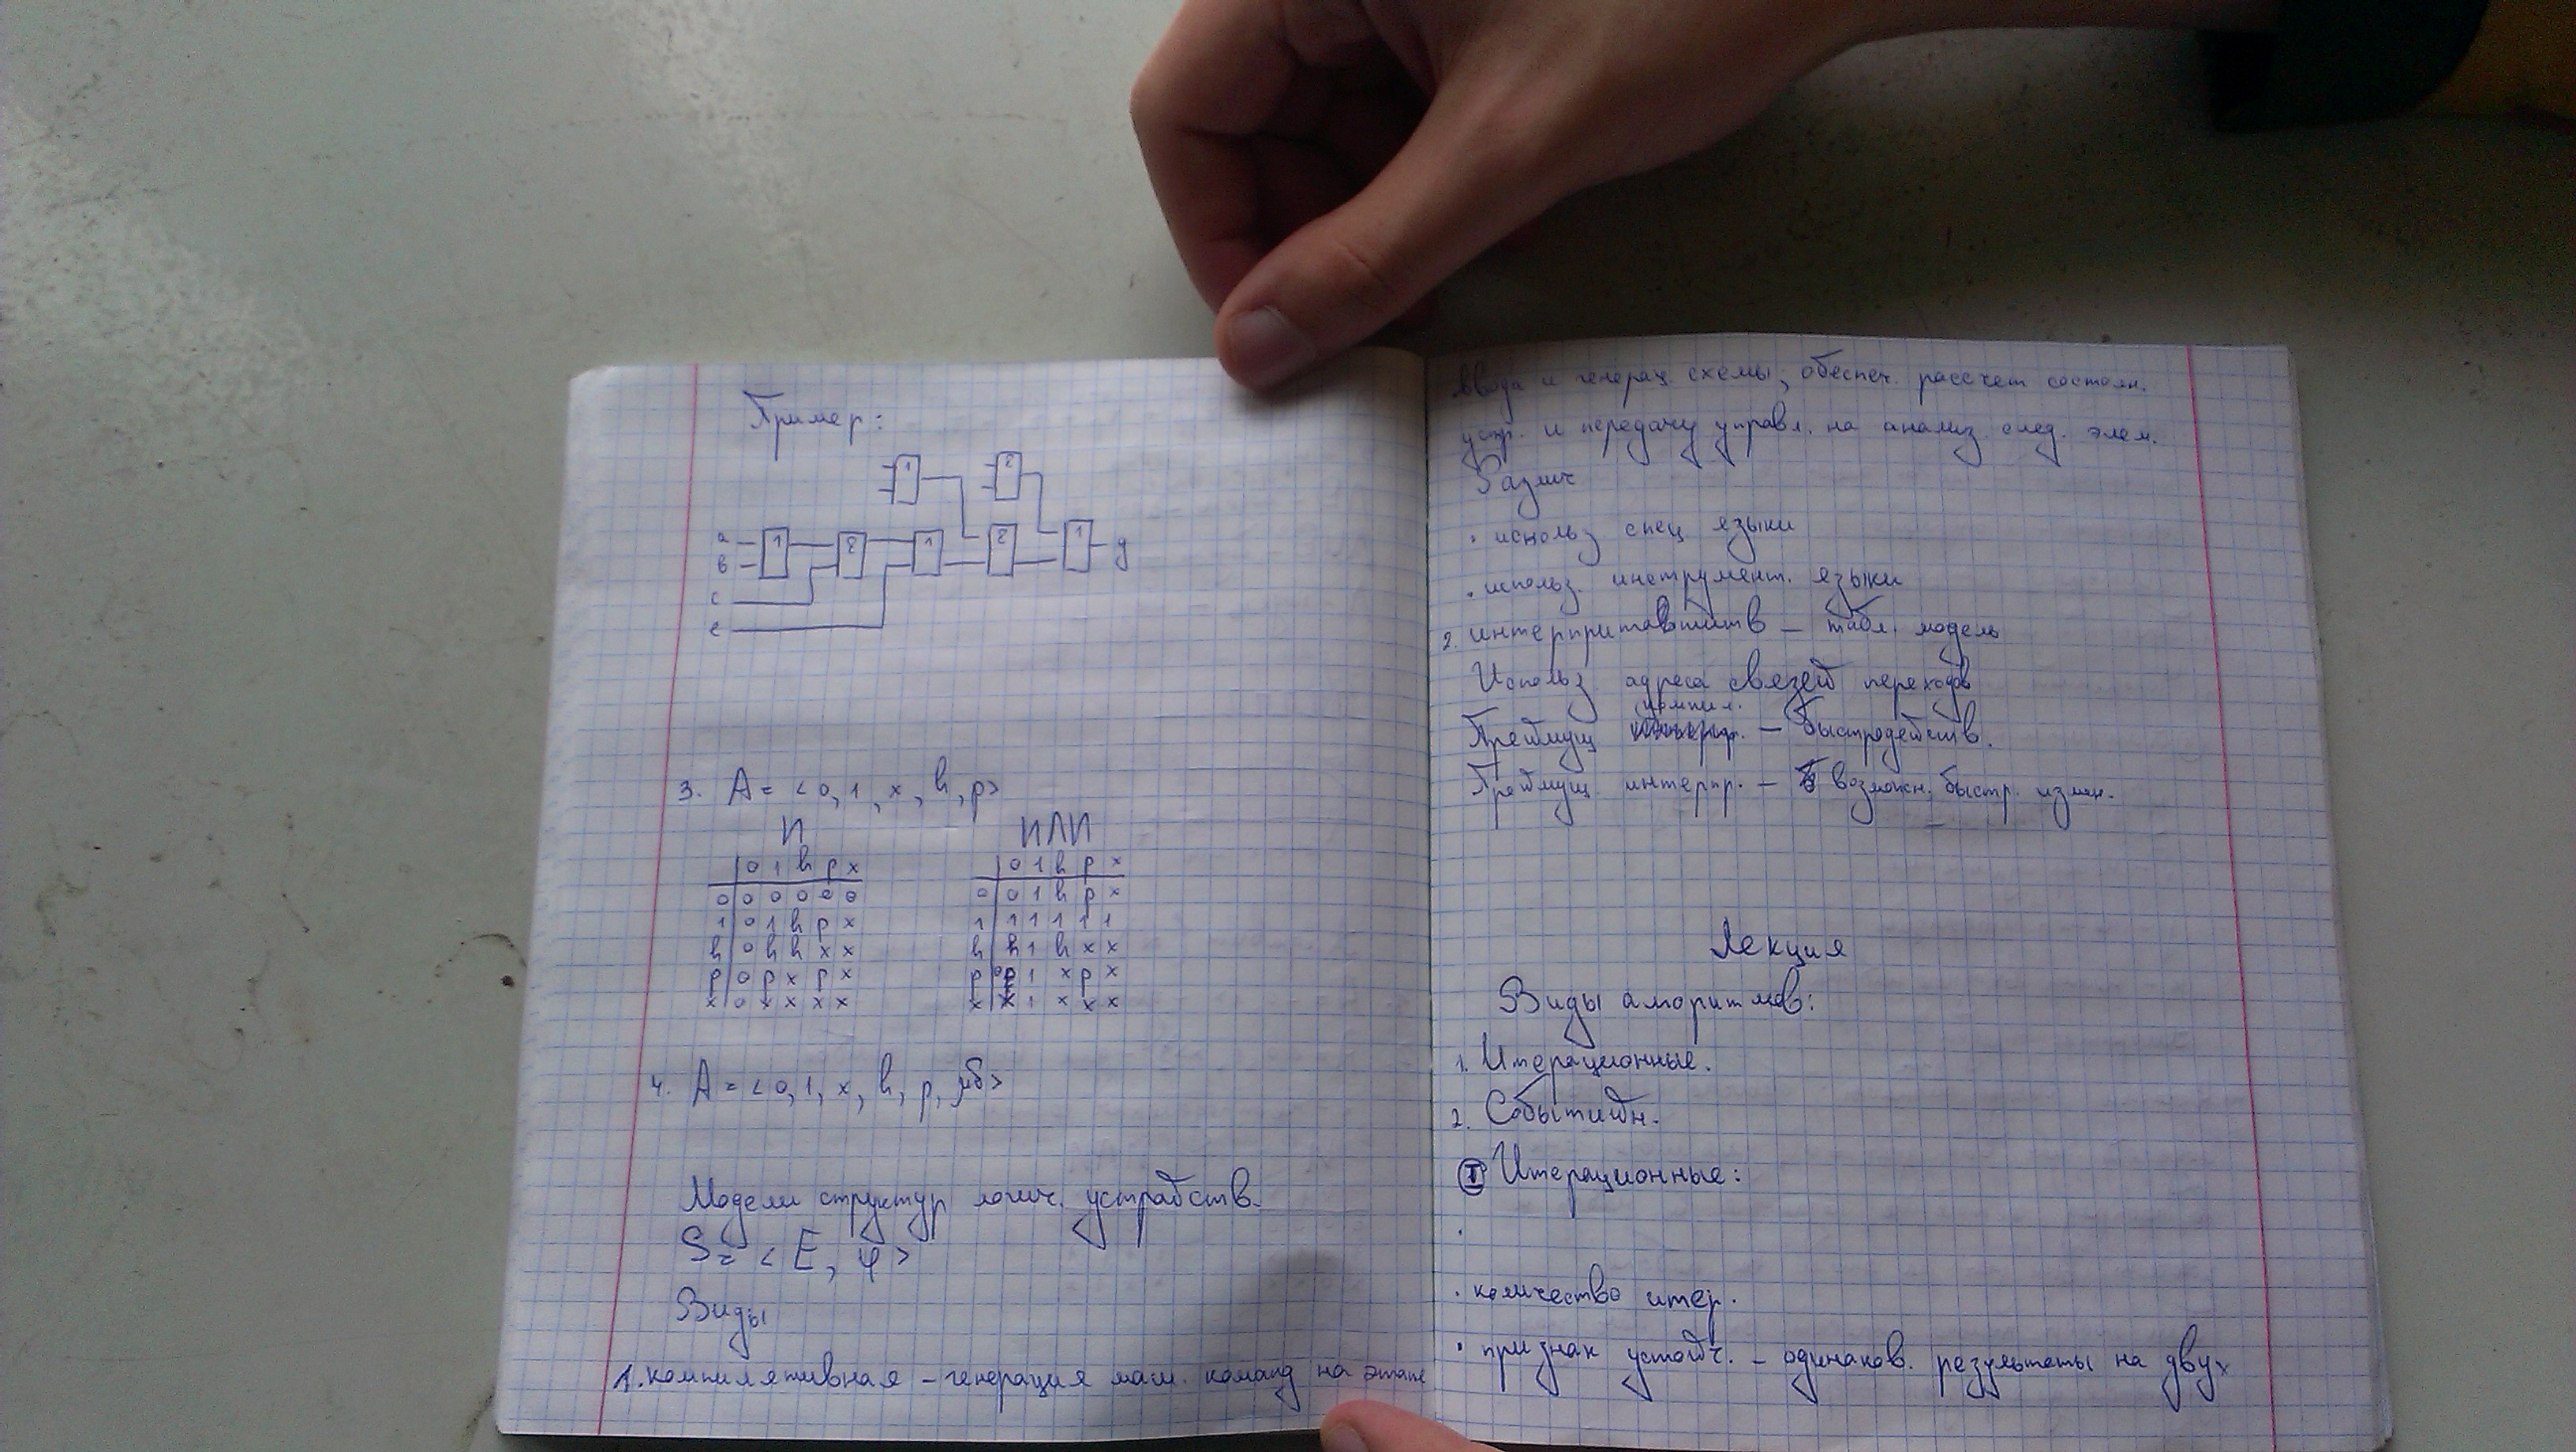 Пример:
1 2
а 1 2 1 2 1 g
в
с
е
3. А = <0, 1, x, h, p>
И
0 1 h p x
0 0 0 0 0 0
1 0 1 h p x
h 0 h h x x
p 0 p x p x
x 0 x x x x
ИЛИ
0 1 h p x
0 0 1 h p x
1 1 1 1 1 1
h h 1 h x x
p p 1 x p x
x x 1 x x x
4. А = <0, 1, x, h, p, >
Модели структур логич. устройств.
S = < E, φ >
Виды
1. компилятивная – генерация маш. команд на этапе
ввода и генерац. схемы, обеспеч. рассчет состоян.
устр. и передачу управл. на анализ. след. элем.
Различ
· использ спец языки
· использ. инструмент. языки
2. – табл. модель
Использ адреса связей переходов
компил.
Преимущ – быстродейств.
Преимущ. интерпр. – возможн. быстр. измен.
Лекция
Виды алгоритмов:
1. Итерационные.
2. Событийн.
I Итерационные:
·
· количество итер.
· признак устойч. – одинаков. результаты на двух